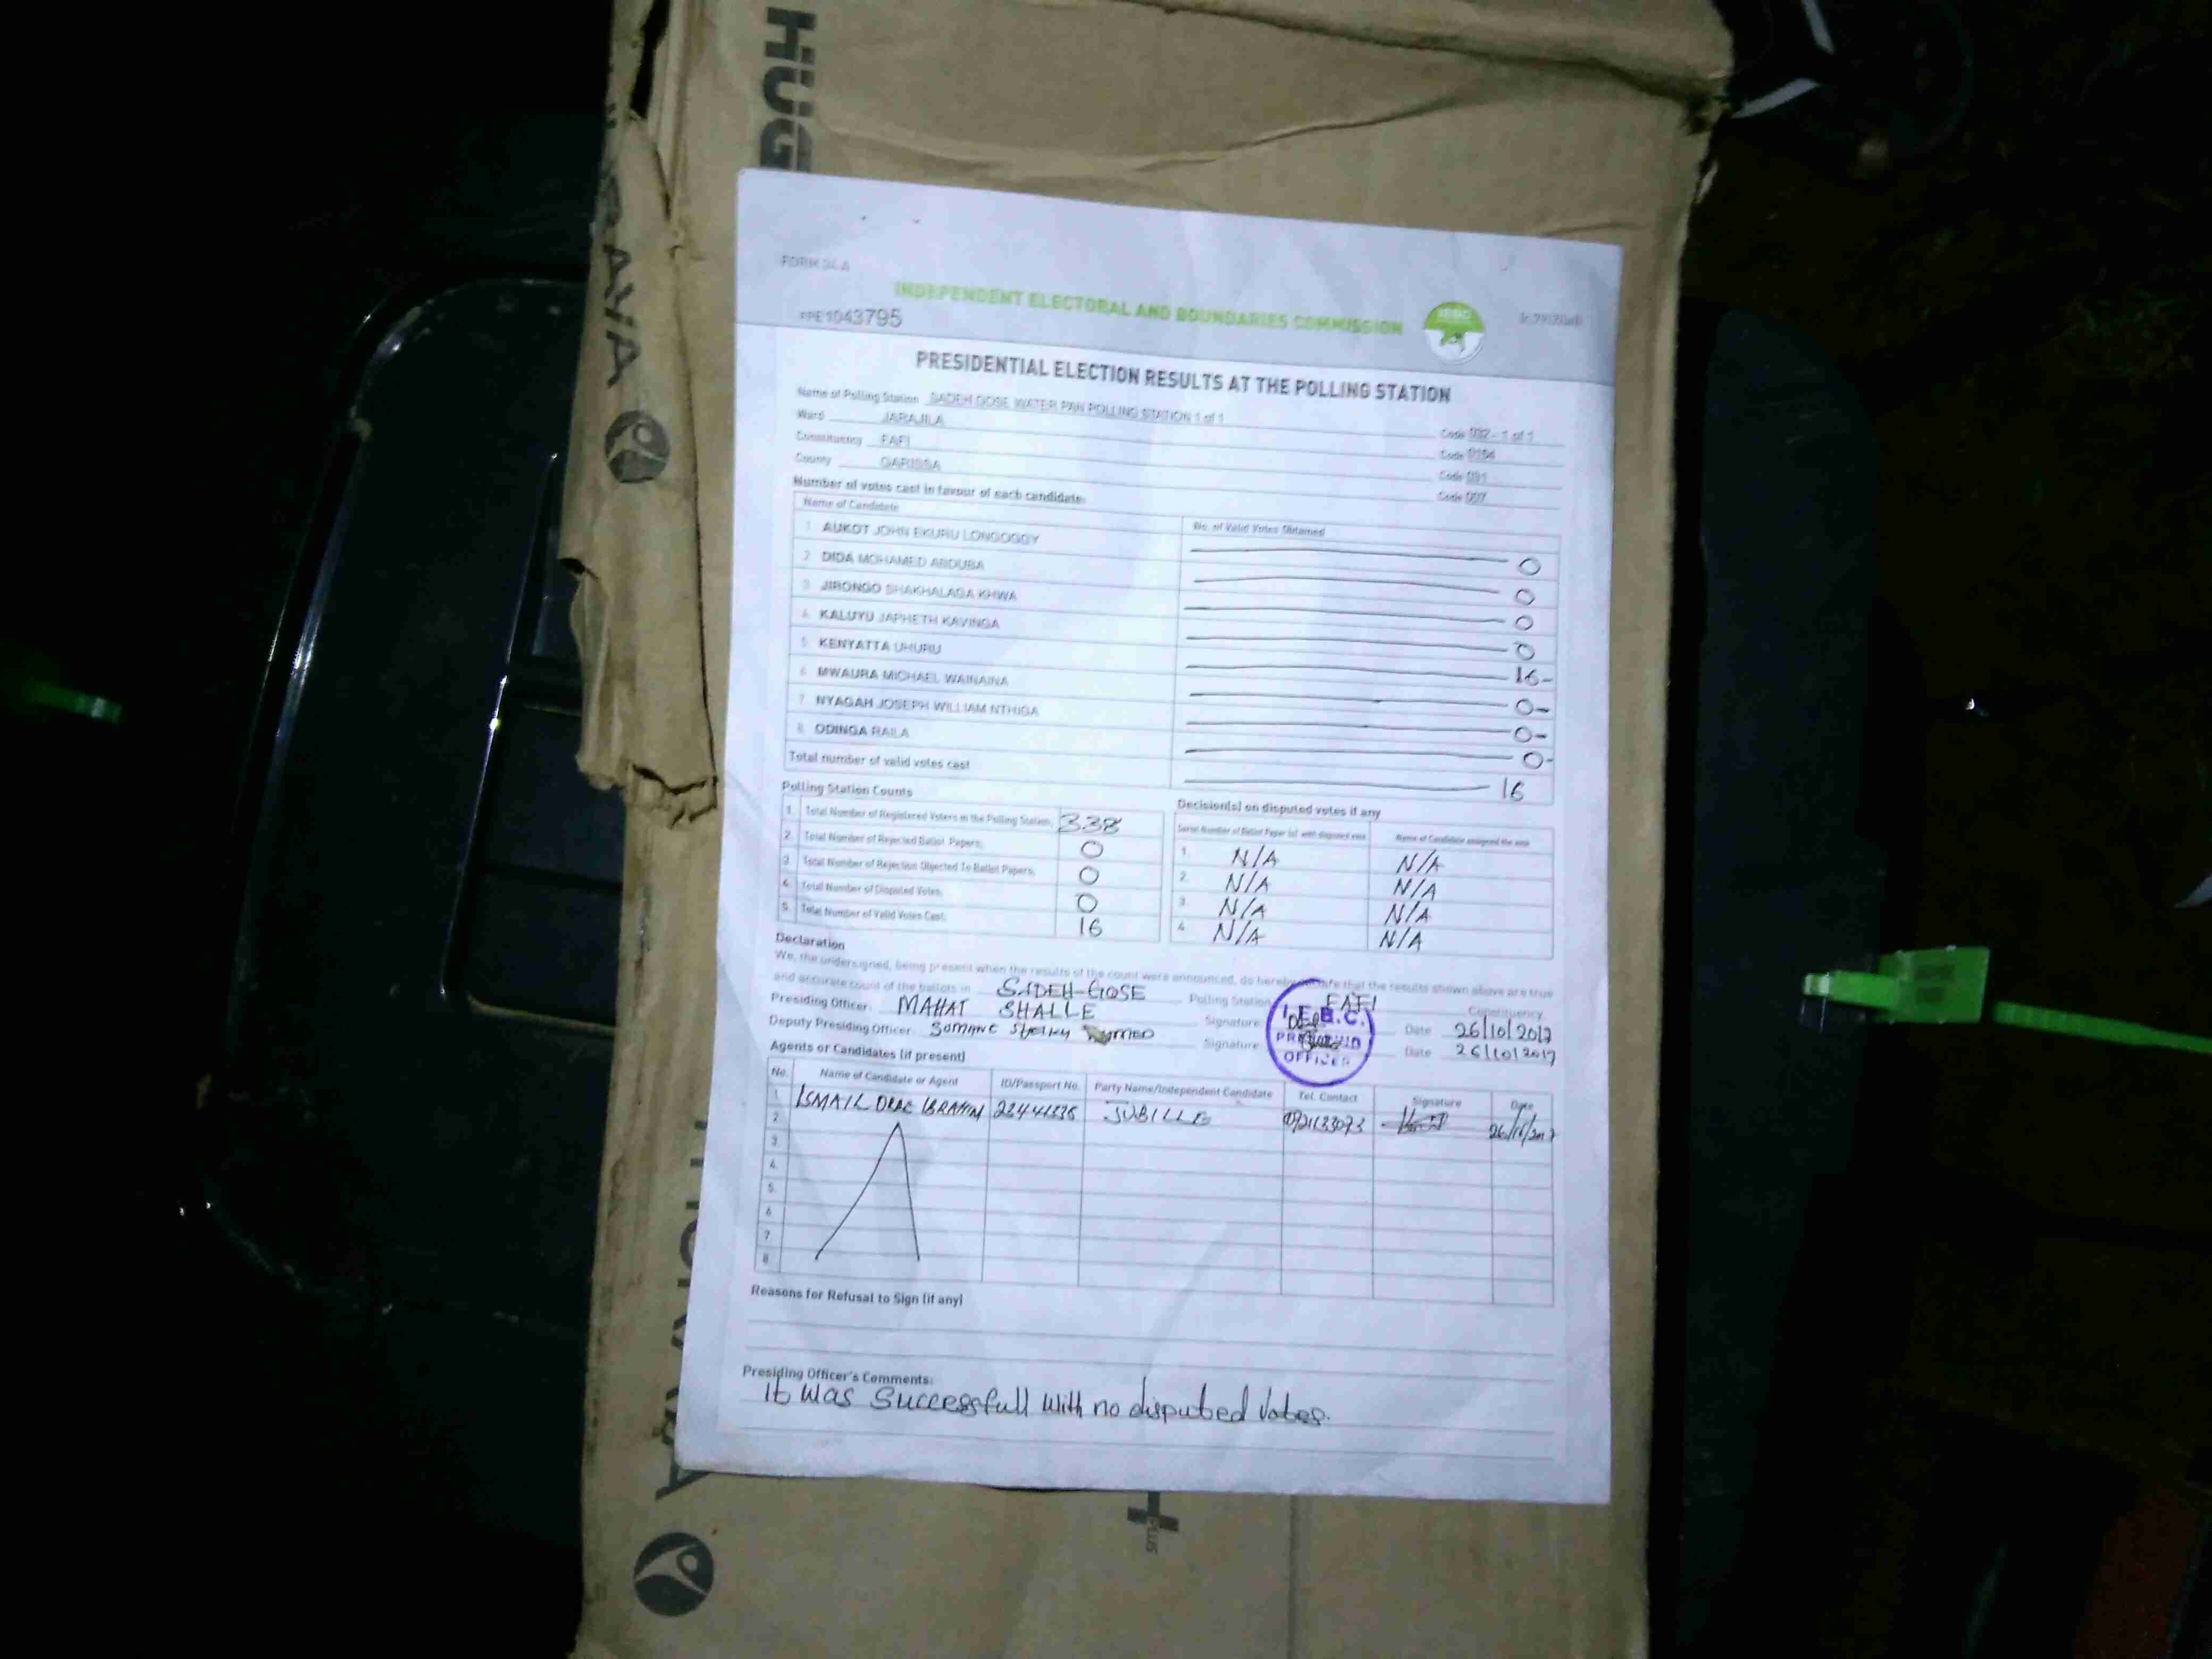 HUG
FORM 34 A
INDEPENDENT ELECTORAL AND BOUNDARIES COMMISSION
IEBC
PPE 1043795
PRESIDENTIAL ELECTION RESULTS AT THE POLLING STATION
Name of Polling Station SADEH GOSE WATER PAN POLLING STATION 1 of 1 Code 092 - 1 of 1
Ward JARAJILA Code
Constituency FAFI Code
County GARISSA Code 007
Number of votes cast in favour of each candidate:
Name of Candidate No. of Valid Votes Obtained
1 AUKOT JOHN EKURU LONGOGGY 0
2 DIDA MOHAMED ABDUBA 0
3 JIRONGO SHAKHALAGA KHWA 0
4 KALUYU JAPHETH KAVINGA 0
5 KENYATTA UHURU 16-
6 MWAURA MICHAEL WAINAINA 0-
7 NYAGAH JOSEPH WILLIAM NTHIGA 0-
8 ODINGA RAILA 0-
Total number of valid votes cast 16
Polling Station Counts
1. Total Number of Registered Voters in the Polling Station; 338
2. Total Number of Rejected Ballot Papers; 0
3. Total Number of Rejection Objected To Ballot Papers; 0
4. Total Number of Disputed Votes; 0
5. Total Number of Valid Votes Cast; 16
Decision(s) on disputed votes if any
Serial Number of Ballot Paper (s) with disputed vote Name of Candidate assigned the vote
1. N/A N/A
2. N/A N/A
3. N/A N/A
4. N/A N/A
Declaration
We, the undersigned, being present when the results of the count were announced, do hereby declare that the results shown above are true
and accurate count of the ballots in SADEH-GOSE Polling Station FAFI Constituency
Presiding Officer: MAHAT SHALLE Signature Date 26/10/2017
Deputy Presiding Officer: Signature Date 26/10/2017
I.E.B.C.
PRESIDING
OFFICER
Agents or Candidates (if present)
No. Name of Candidate or Agent ID/Passport No. Party Name/Independent Candidate Tel. Contact Signature Date
1 ISMAIL IBRAHIM JUBILLE 0721133073 26/10/2017
2.
3.
4.
5.
6.
7
8
Reasons for Refusal to Sign (if any)
Presiding Officer's Comments:
It was Successfull with no disputed Votes.
PLUS